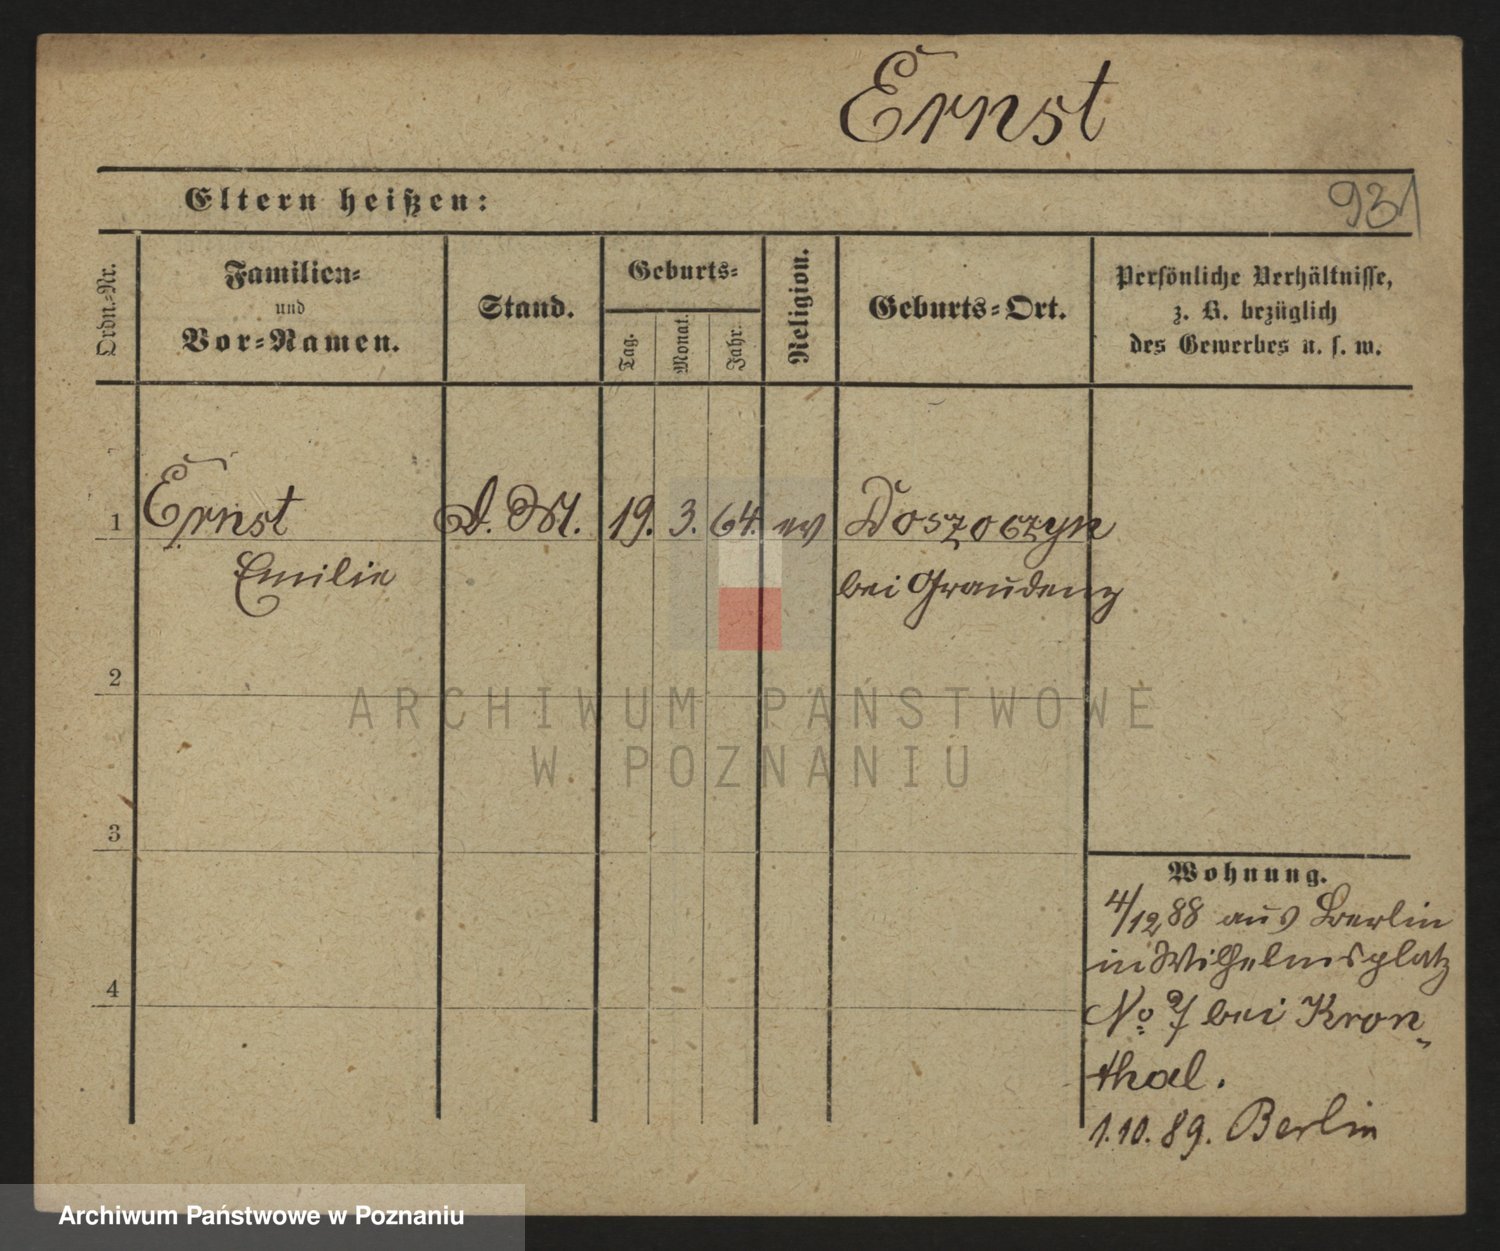 Ernst
Eltern heißen:
931
Ordn.-Nr.
Familien-
und
Vor-Namen.
Stand.
Geburts-
Tag.
Monat.
Jahr.
Religion.
Geburts-Ort.
Persönliche Verhältnisse,
z. B. bezüglich
des Gewerbes u. s. w.
1 Ernst D. M. 19. 3. 64. ev Doszoczyn
Emilie bei Graudenz
2
3
4
Wohnung.
4/12 88 aus Berlin
in Wilhelmsplatz
No 7 bei Kron-
thal.
1.10.89. Berlin
ARCHIWUM PAŃSTWOWE
W POZNANIU
Archiwum Państwowe w Poznaniu